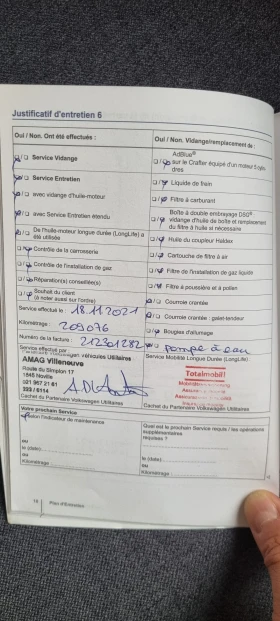 Justificatif d'entretien 6
Oui / Non. Ont été effectués :
Oui / Non. Vidange/remplacement de :
Service Vidange
AdBlue®
sur le Crafter équipé d'un moteur 5 cylindres
Service Entretien
Liquide de frein
avec vidange d'huile-moteur
Filtre à carburant
avec Service Entretien étendu
Boîte à double embrayage DSG®
vidange d'huile de boîte et remplacement
du filtre à huile si nécessaire
De l'huile-moteur longue durée (LongLife) a
été utilisée
Huile du coupleur Haldex
Contrôle de la carrosserie
Cartouche de filtre à air
Contrôle de l'installation de gaz
Filtre de l'installation de gaz liquide
Réparation(s) conseillée(s)
Filtre à poussière et à pollen
Souhait du client
(à noter aussi sur l'ordre)
Courroie crantée
Service effectué le : 18.11.2021
Courroie crantée : galet-tendeur
Kilométrage : 209076
Bougies d'allumage
Numéro de la facture : 212301282
pompe à eau
Service effectué par :
Service Mobilité Longue Durée (LongLife)
véhicules Utilitaires
AMAG Villeneuve
Route du Simplon 17
1845 Noville
021 967 21 81
Totalmobil!
Cachet du Partenaire Volkswagen Utilitaires
Cachet du Partenaire Volkswagen Utilitaires
Votre prochain Service
selon l'indicateur de maintenance
Quel est le prochain Service requis / les opérations
supplémentaires
requises ?
ou
le (date)
ou
Kilométrage :
le (date)
ou
Kilométrage :
16
Plan d'Entretien